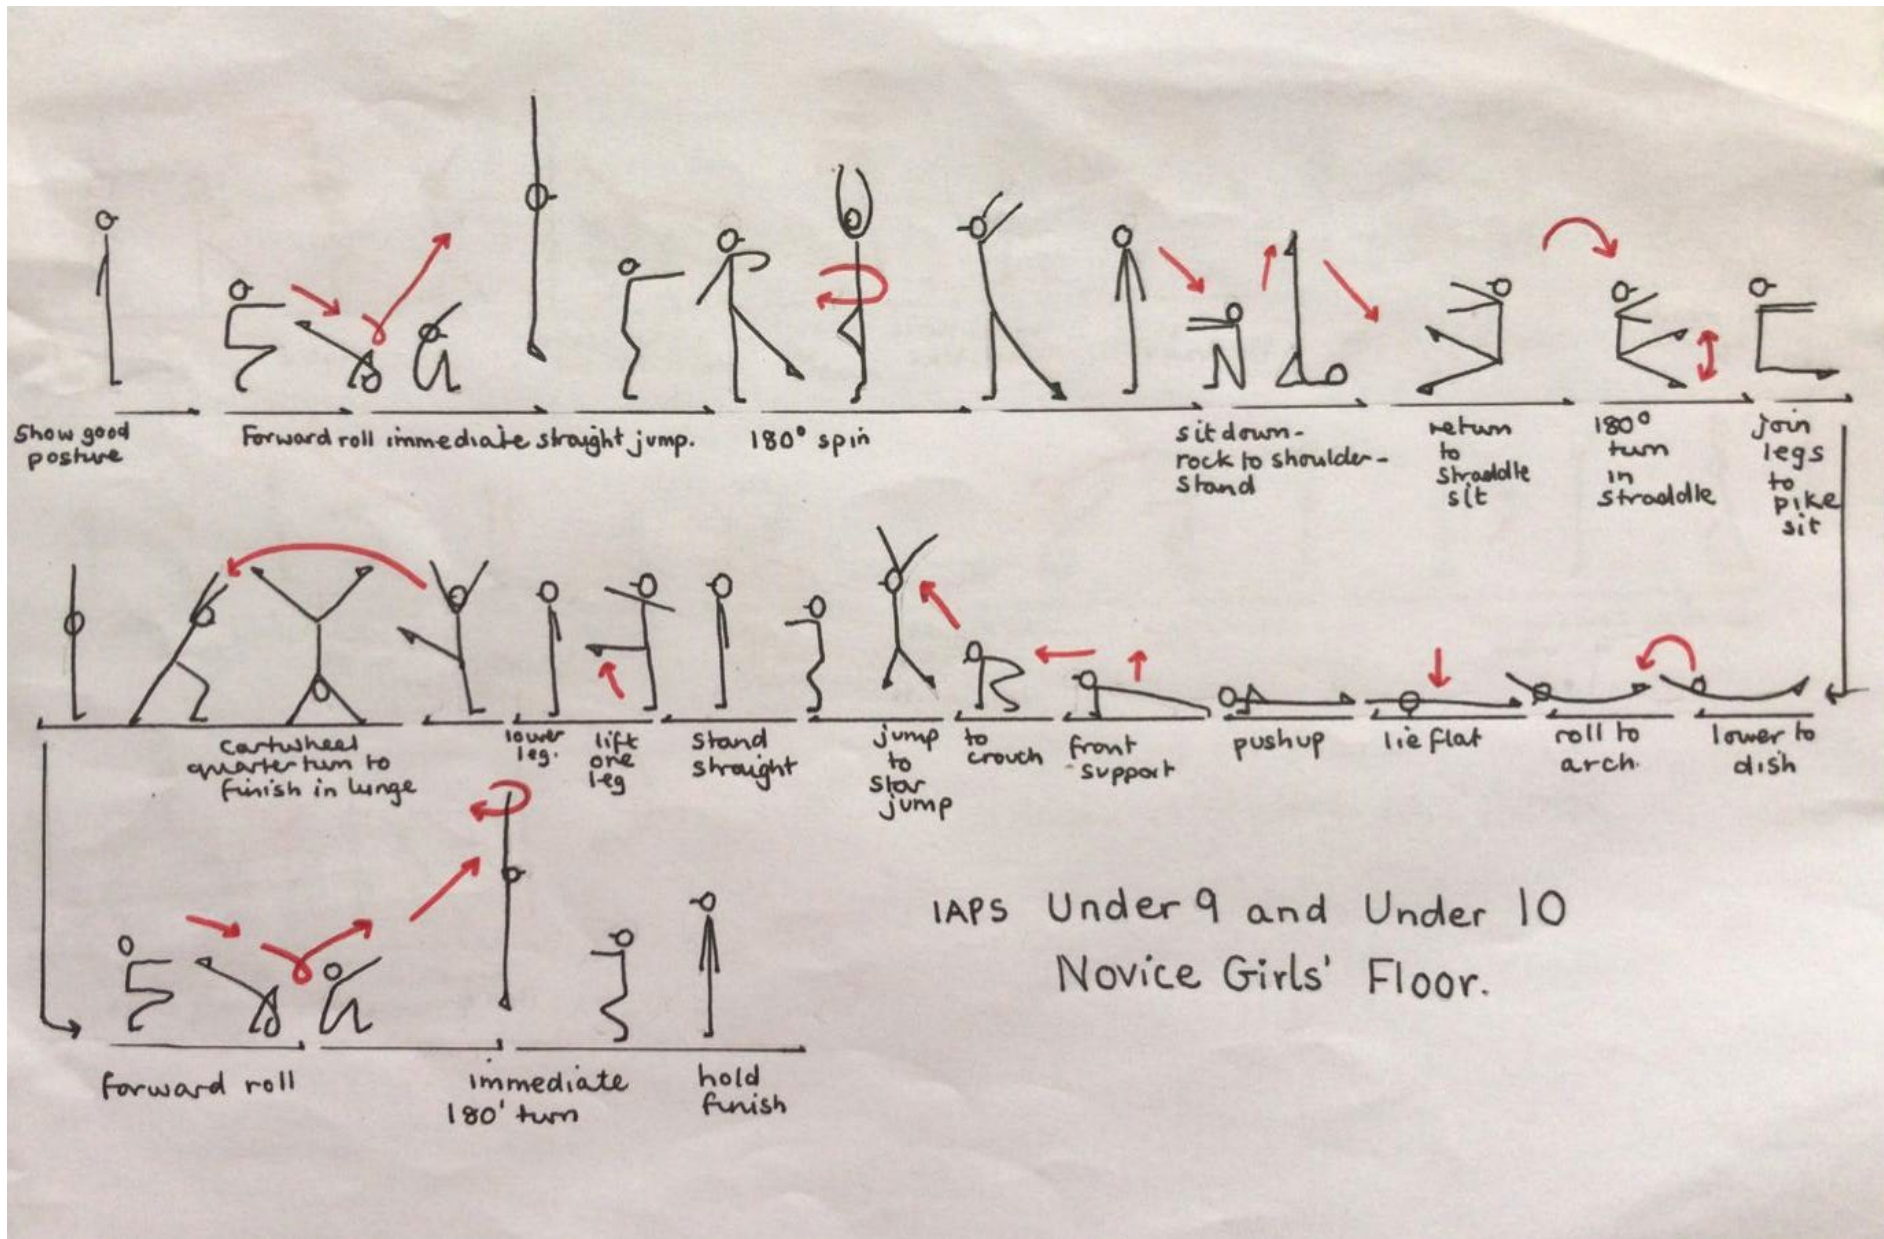 Show good
posture
Forward roll immediate straight jump.
180° spin
sit down-
rock to shoulder-
stand
return
to
straddle
sit
180°
turn
in
straddle
join
legs
to
pike
sit
cartwheel
quarter turn to
finish in lunge
lower
leg.
lift
one
leg
stand
straight
jump
to
star
jump
to
crouch
front
support
push up
lie flat
roll to
arch
lower to
dish
forward roll
immediate
180° turn
hold
finish
IAPS Under 9 and Under 10
Novice Girls' Floor.